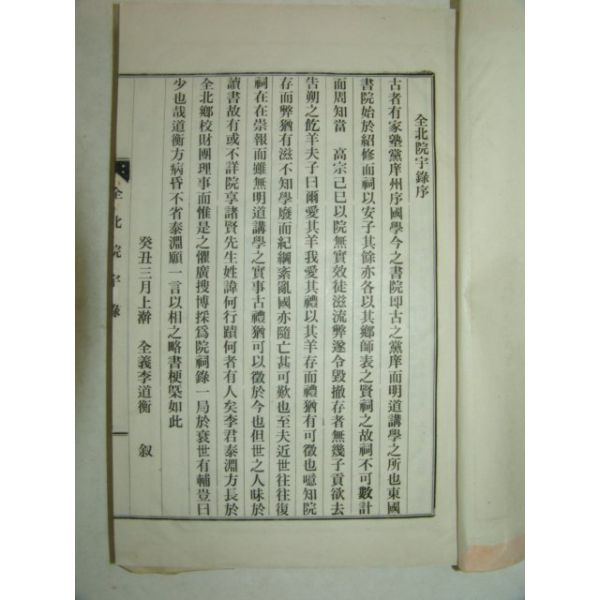 全北院宇錄序
古者有家塾黨庠州序國學今之書院即古之黨庠而明道講學之所也東國
書院始於紹修而祠以安子其餘亦各以其鄉師表之賢祠之故祠不可數計
而周知當　高宗己巳以院無實效徒滋流弊遂令毀撤存者無幾子貢欲去
告朔之餼羊夫子曰爾愛其羊我愛其禮以其羊存而禮猶有可徵也噫知院
存而弊猶有滋不知學廢而紀綱紊亂國亦隨亡甚可歎也至夫近世往往復
祠在在崇報而雖無明道講學之實事古禮猶可以徵於今也但世之人昧於
讀書故有或不詳院享諸賢先生姓諱何行蹟何者有人矣李君泰淵方長於
全北鄉校財團理事而惟是之懼廣搜博採爲院祠錄一局於衰世有輔豈曰
少也哉道衡方病昏不省泰淵願一言以相之略書梗槩如此
癸丑三月上澣　全義李道衡　叙
全北院宇錄